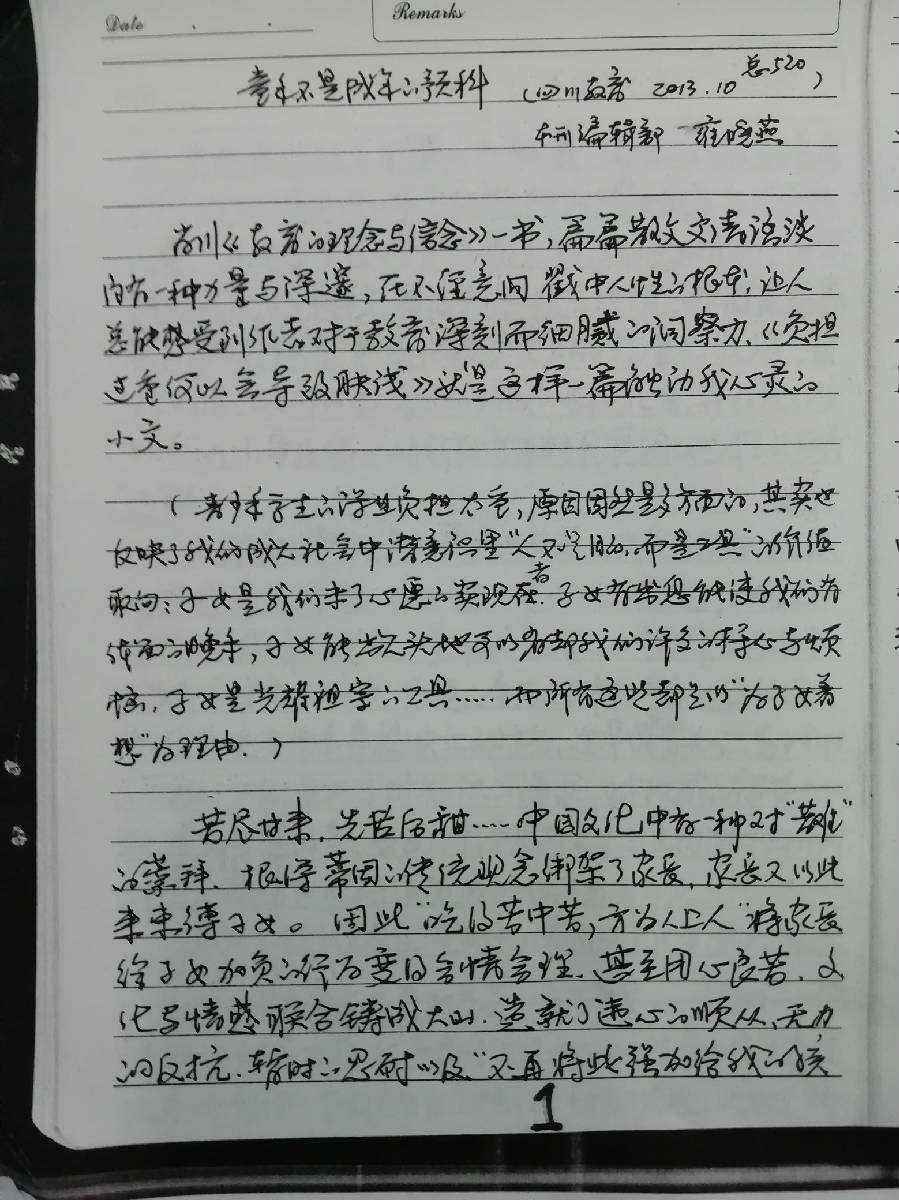 Date
Remarks
童年不是成年的预科 (四川教育 2013.10 总520)
本刊编辑部 雍晓燕
肖川《教育的理念与信念》一书,篇篇散文文字清洁淡
内有一种力量与深邃,在不经意间戳中人性的根本,让人
总能感受到作者对于教育深刻而细腻的洞察力、《负担
过重何以会导致肤浅》就是这样一篇能触动我心灵的
小文。
(青少年学生的课业负担太重,原因固然是多方面的,其实也
反映了我们成人社会中潜意识里“人不是目的,而是工具”的价值
取向:子女是我们未了心愿的实现者,子女有出息能使我们有
体面的晚年,子女能出人头地可以省却我们许多的操心与烦
恼,子女是光耀祖宗的工具……而所有这些都会以“为子女着
想”为理由.)
苦尽甘来,先苦后甜……中国文化中有一种对“苦难”
的崇拜.根深蒂固的传统观念绑架了家长,家长又以此
来束缚子女。因此“吃得苦中苦,方为人上人”将家长
给子女加负的行为变得合情合理、甚至用心良苦.文
化与情感联合铸成大山.造就了违心的顺从、无力
的反抗、暂时的忍耐以及“不再将此强加给我的孩
1